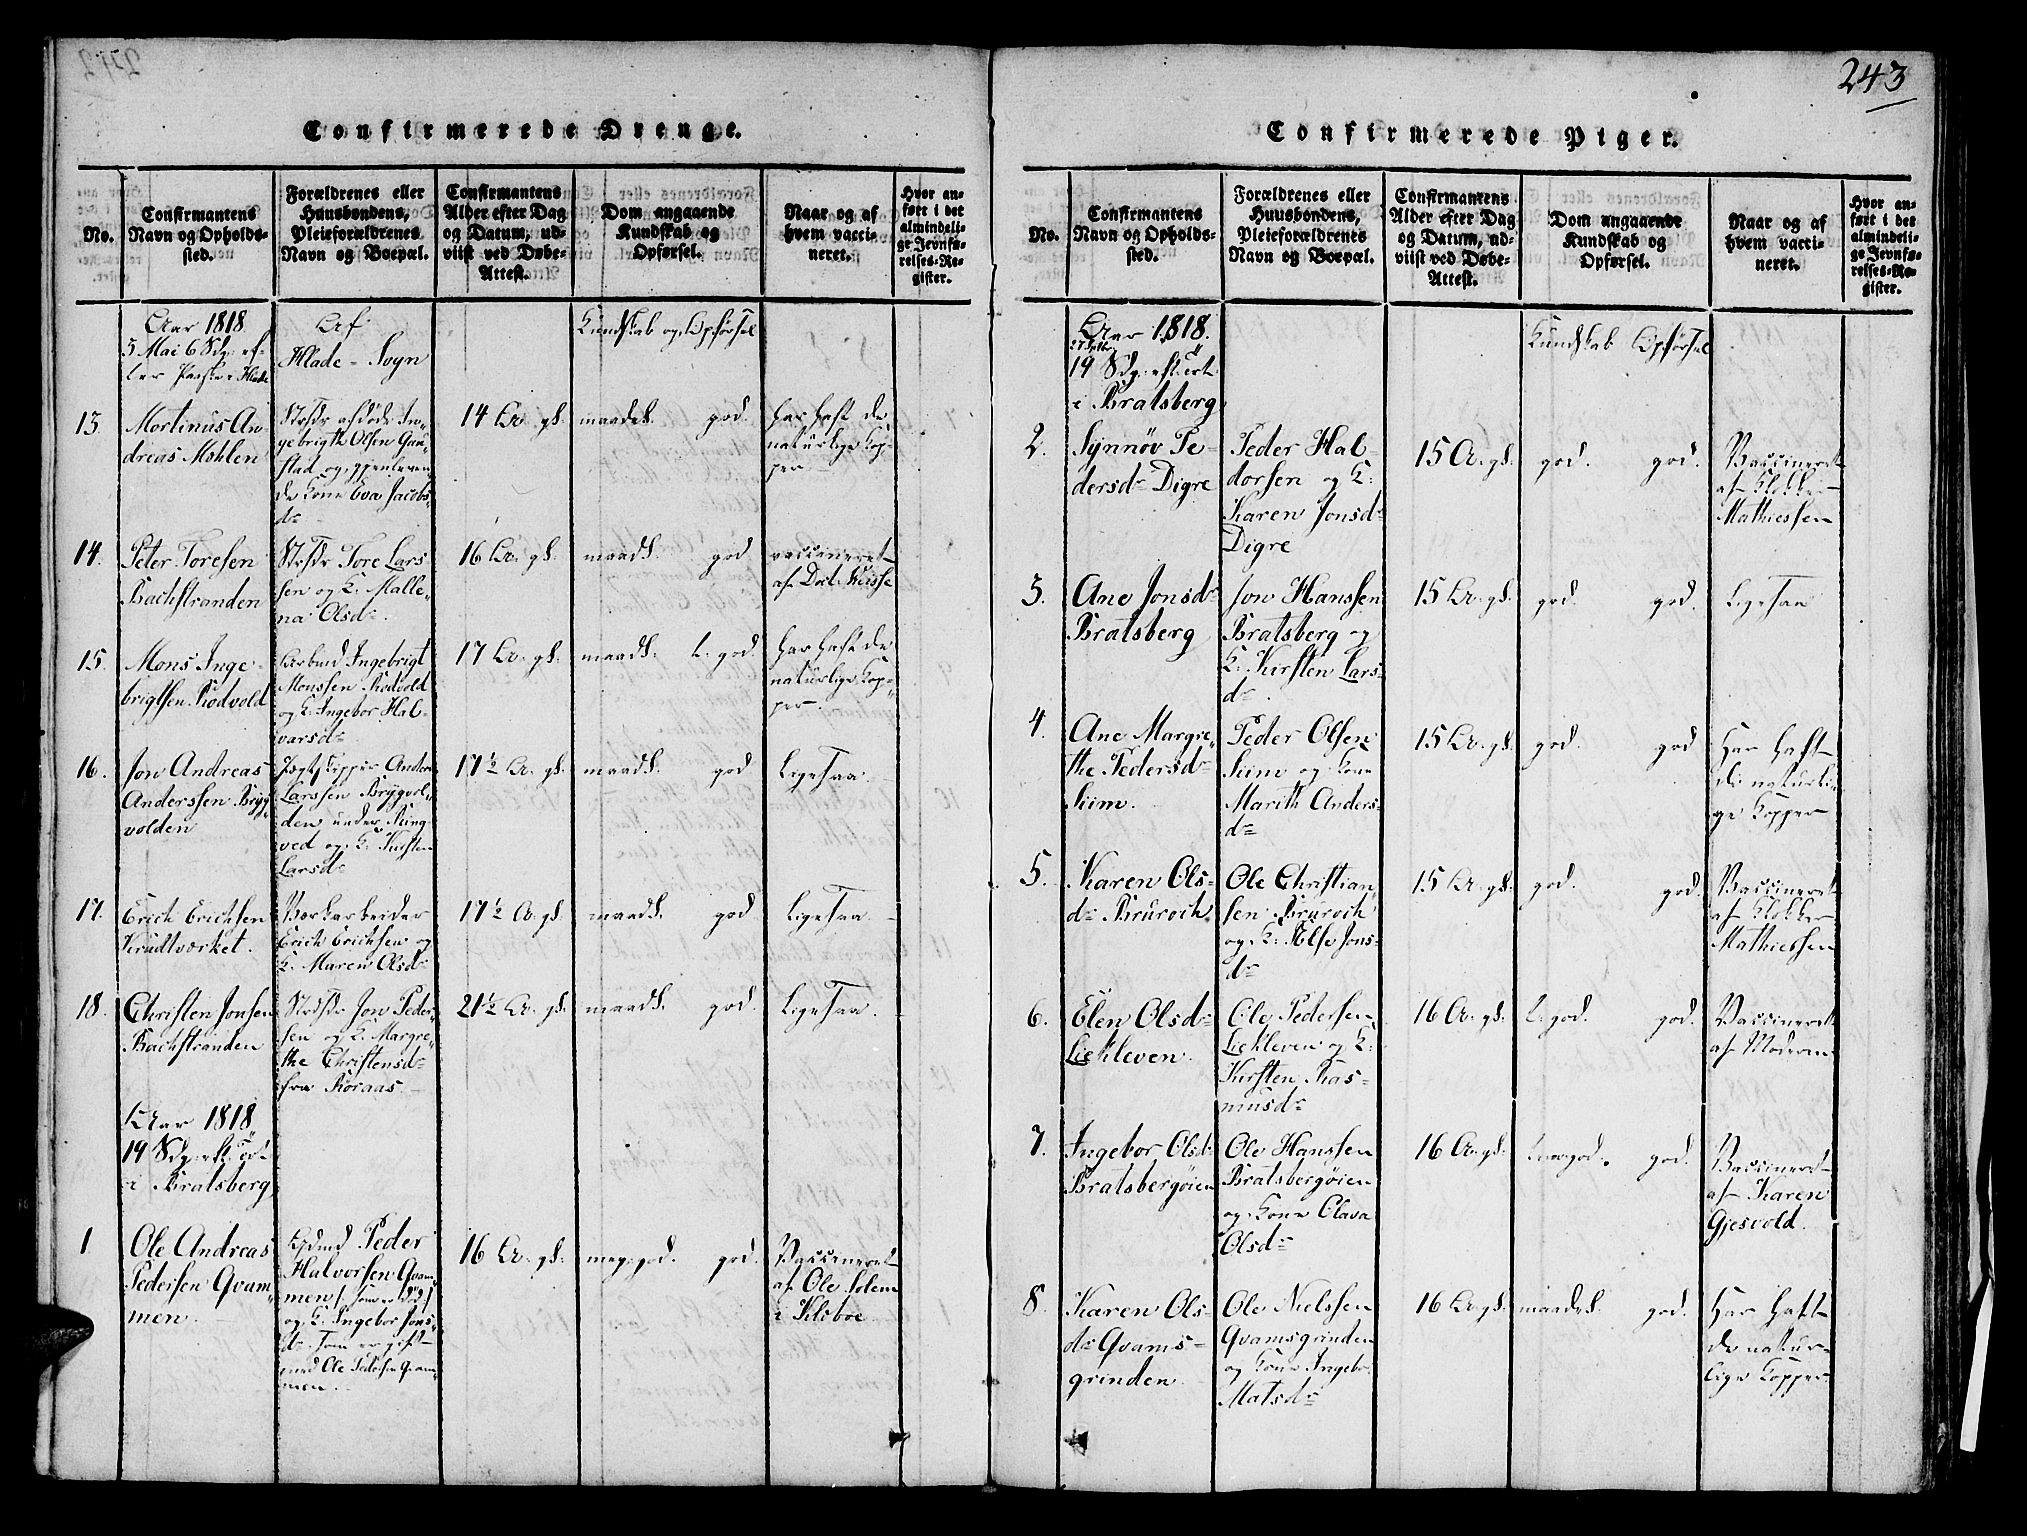 243
Confirmerede Drenge.
No.
Confirmantens
Navn og Opholds-
sted.
Forældrenes eller
Huusbondens,
Pleieforældrenes
Navn og Boepæl.
Confirmantens
Alder efter Dag
og Datum, ud-
viist ved Døbe-
Attest.
Dom angaaende
Kundskab og
Opførsel.
Naar og af
hvem vacci-
neret.
Hvor an-
ført i det
almindeli-
ge Jevnfø-
relses-Re-
gister.
Aar 1818
3 Mai 6 Sdg: ef-
ter Paaske i Hlade
Af
Hlade-Sogn
Kundskab og Opførsel
13.
Mortinus An-
dreas Mohlen
afdøde In-
gebrigth Olsen Gau-
stad og igjenleven
de Kone Eva Jacobs-
dr
14 Ar. gl.
maadel. god.
har haft de
naturlige Kop-
per
14.
Peter Toresen
Bachstranden
Tore Lars
sen og K. Malle-
na Olsdr.
16 Ar. gl.
maadl. god
vaccineret
af Doct.
15.
Mons Inge-
brigtsen Rodvold
Arbmd Ingebrigt
Monssen Rodvold
og K. Ingebor Hal-
varsdr
17 Ar. gl.
maadl. t. god.
har haft de
naturlige Kop-
per.
16.
Jon Andreas
Anderssen Brygg
volden
Jagtskipper Anders
Larssen Brygvol-
den under Ring-
ved og K. Kirsten
Larsdr
17½ A. gl.
maadl. god
Ligesaa.
17.
Erich Erichsen
Krudtværket.
Værkarbeider
Erich Erichsen og
K. Maren Olsdr
17½ A. gl.
maadl. god
Ligesaa.
18.
Christen Jonsen
Bachstranden
Jon Peder-
sen og K. Margre-
the Christensdr
fra Røraas
21½ A. gl.
maadl. god.
Ligesaa.
Aar 1818
19 Sdg: eft: Tr:
i Bratsberg
1
Ole Andreas
Pedersen Qvam-
men.
Gdmd Peder
Halvorsen Qvam-
men/: som er død:/
og K. Ingebor Jons-
dr. som er gift
med Ole Pedersen Qvam-
men.
16 Ar. gl.
meg: god. god.
Vaccineret
af Ole Solem
i Klæboe.
Confirmerede Piger.
No.
Confirmantens
Navn og Opholds-
sted.
Forældrenes eller
Huusbondens,
Pleieforældrenes
Navn og Boepæl.
Confirmantens
Alder efter Dag
og Datum, ud-
viist ved Døbe-
Attest.
Dom angaaende
Kundskab og
Opførsel.
Naar og af
hvem vacci-
neret.
Hvor an-
ført i det
almindeli-
ge Jevnfø-
relses-Re-
gister.
Aar 1818.
27 Septbr.
19 Sdg: eft: Tr:
i Bratsberg
Kundskab Opførsel
2.
Synnøv Pe-
dersdr Digre
Peder Hal-
dorsen og K:
Karen Jonsdr
Digre
15 A. gl.
god. god.
Vaccineret
af Klokker
Mathiessen
3.
Ane Jonsdr
Bratsberg
Jon Hanssen
Bratsberg og
K. Kirsten Lars-
dr
15 Ar. gl.
god. god.
Ligesaa
4.
Ane Margre-
the Pedersdr
Siim.
Peder Olsen
Siim og Kone
Marith Anders-
dr
15 Ar. gl.
god. god
Har haft
de naturli-
ge Kopper
5.
Karen Ols-
dr Bruroch.
Ole Christian-
sen Bruroch
og K: Else Jons-
dr
15 Ar. gl.
god. god.
Vaccineret
af Klokker
Mathiessen
6.
Elen Olsdr
Liekleven.
Ole Pedersen
Liekleven og K:
Kirsten Ras-
musdr
16 A. gl.
t. god. god.
Vaccineret
af Moderen
7.
Ingebor Olsdr
Bratsbergøien
Ole Hanssen
Bratsbergøien
og Kone Olava
Olsdr
16 A. gl.
god. god.
Vaccineret
af Karen
Gjesvold.
8.
Karen Ols-
dr Qvams-
grinden
Ole Nielssen
Qvamsgrinden
og Kone Ingebor
Matsdr
16 Ar. gl.
maadel. god.
Har haft
de natur-
lige Kopper